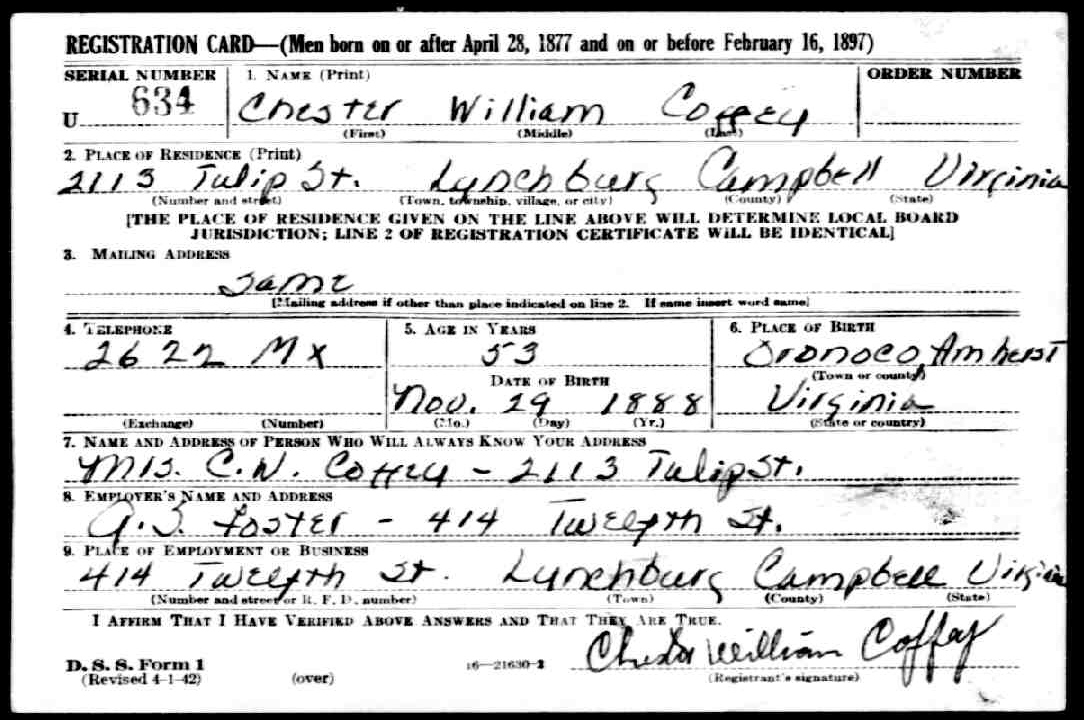 REGISTRATION CARD—(Men born on or after April 28, 1877 and on or before February 16, 1897)
SERIAL NUMBER 1. NAME (Print) ORDER NUMBER
U 634 Chester William Coffey
(First) (Middle) (Last)
2. PLACE OF RESIDENCE (Print)
2113 Tulip St. Lynchburg Campbell Virginia
(Number and street) (Town, township, village, or city) (County) (State)
[THE PLACE OF RESIDENCE GIVEN ON THE LINE ABOVE WILL DETERMINE LOCAL BOARD
JURISDICTION; LINE 2 OF REGISTRATION CERTIFICATE WILL BE IDENTICAL]
3. MAILING ADDRESS
Same
[Mailing address if other than place indicated on line 2. If same insert word same]
4. TELEPHONE 5. AGE IN YEARS 6. PLACE OF BIRTH
2622 MX 53 Oronoco, Amherst
DATE OF BIRTH (Town or county)
Nov. 29 1888 Virginia
(Exchange) (Number) (Mo.) (Day) (Yr.) (State or country)
7. NAME AND ADDRESS OF PERSON WHO WILL ALWAYS KNOW YOUR ADDRESS
Mrs. C.W. Coffey - 2113 Tulip St.
8. EMPLOYER'S NAME AND ADDRESS
A.S. Foster - 414 Twelfth St.
9. PLACE OF EMPLOYMENT OR BUSINESS
414 Twelfth St. Lynchburg Campbell Virginia
(Number and street or R. F. D. number) (Town) (County) (State)
I AFFIRM THAT I HAVE VERIFIED ABOVE ANSWERS AND THAT THEY ARE TRUE.
D. S. S. Form 1 16—21630-2 Chester William Coffey
(Revised 4-1-42) (over) (Registrant's signature)